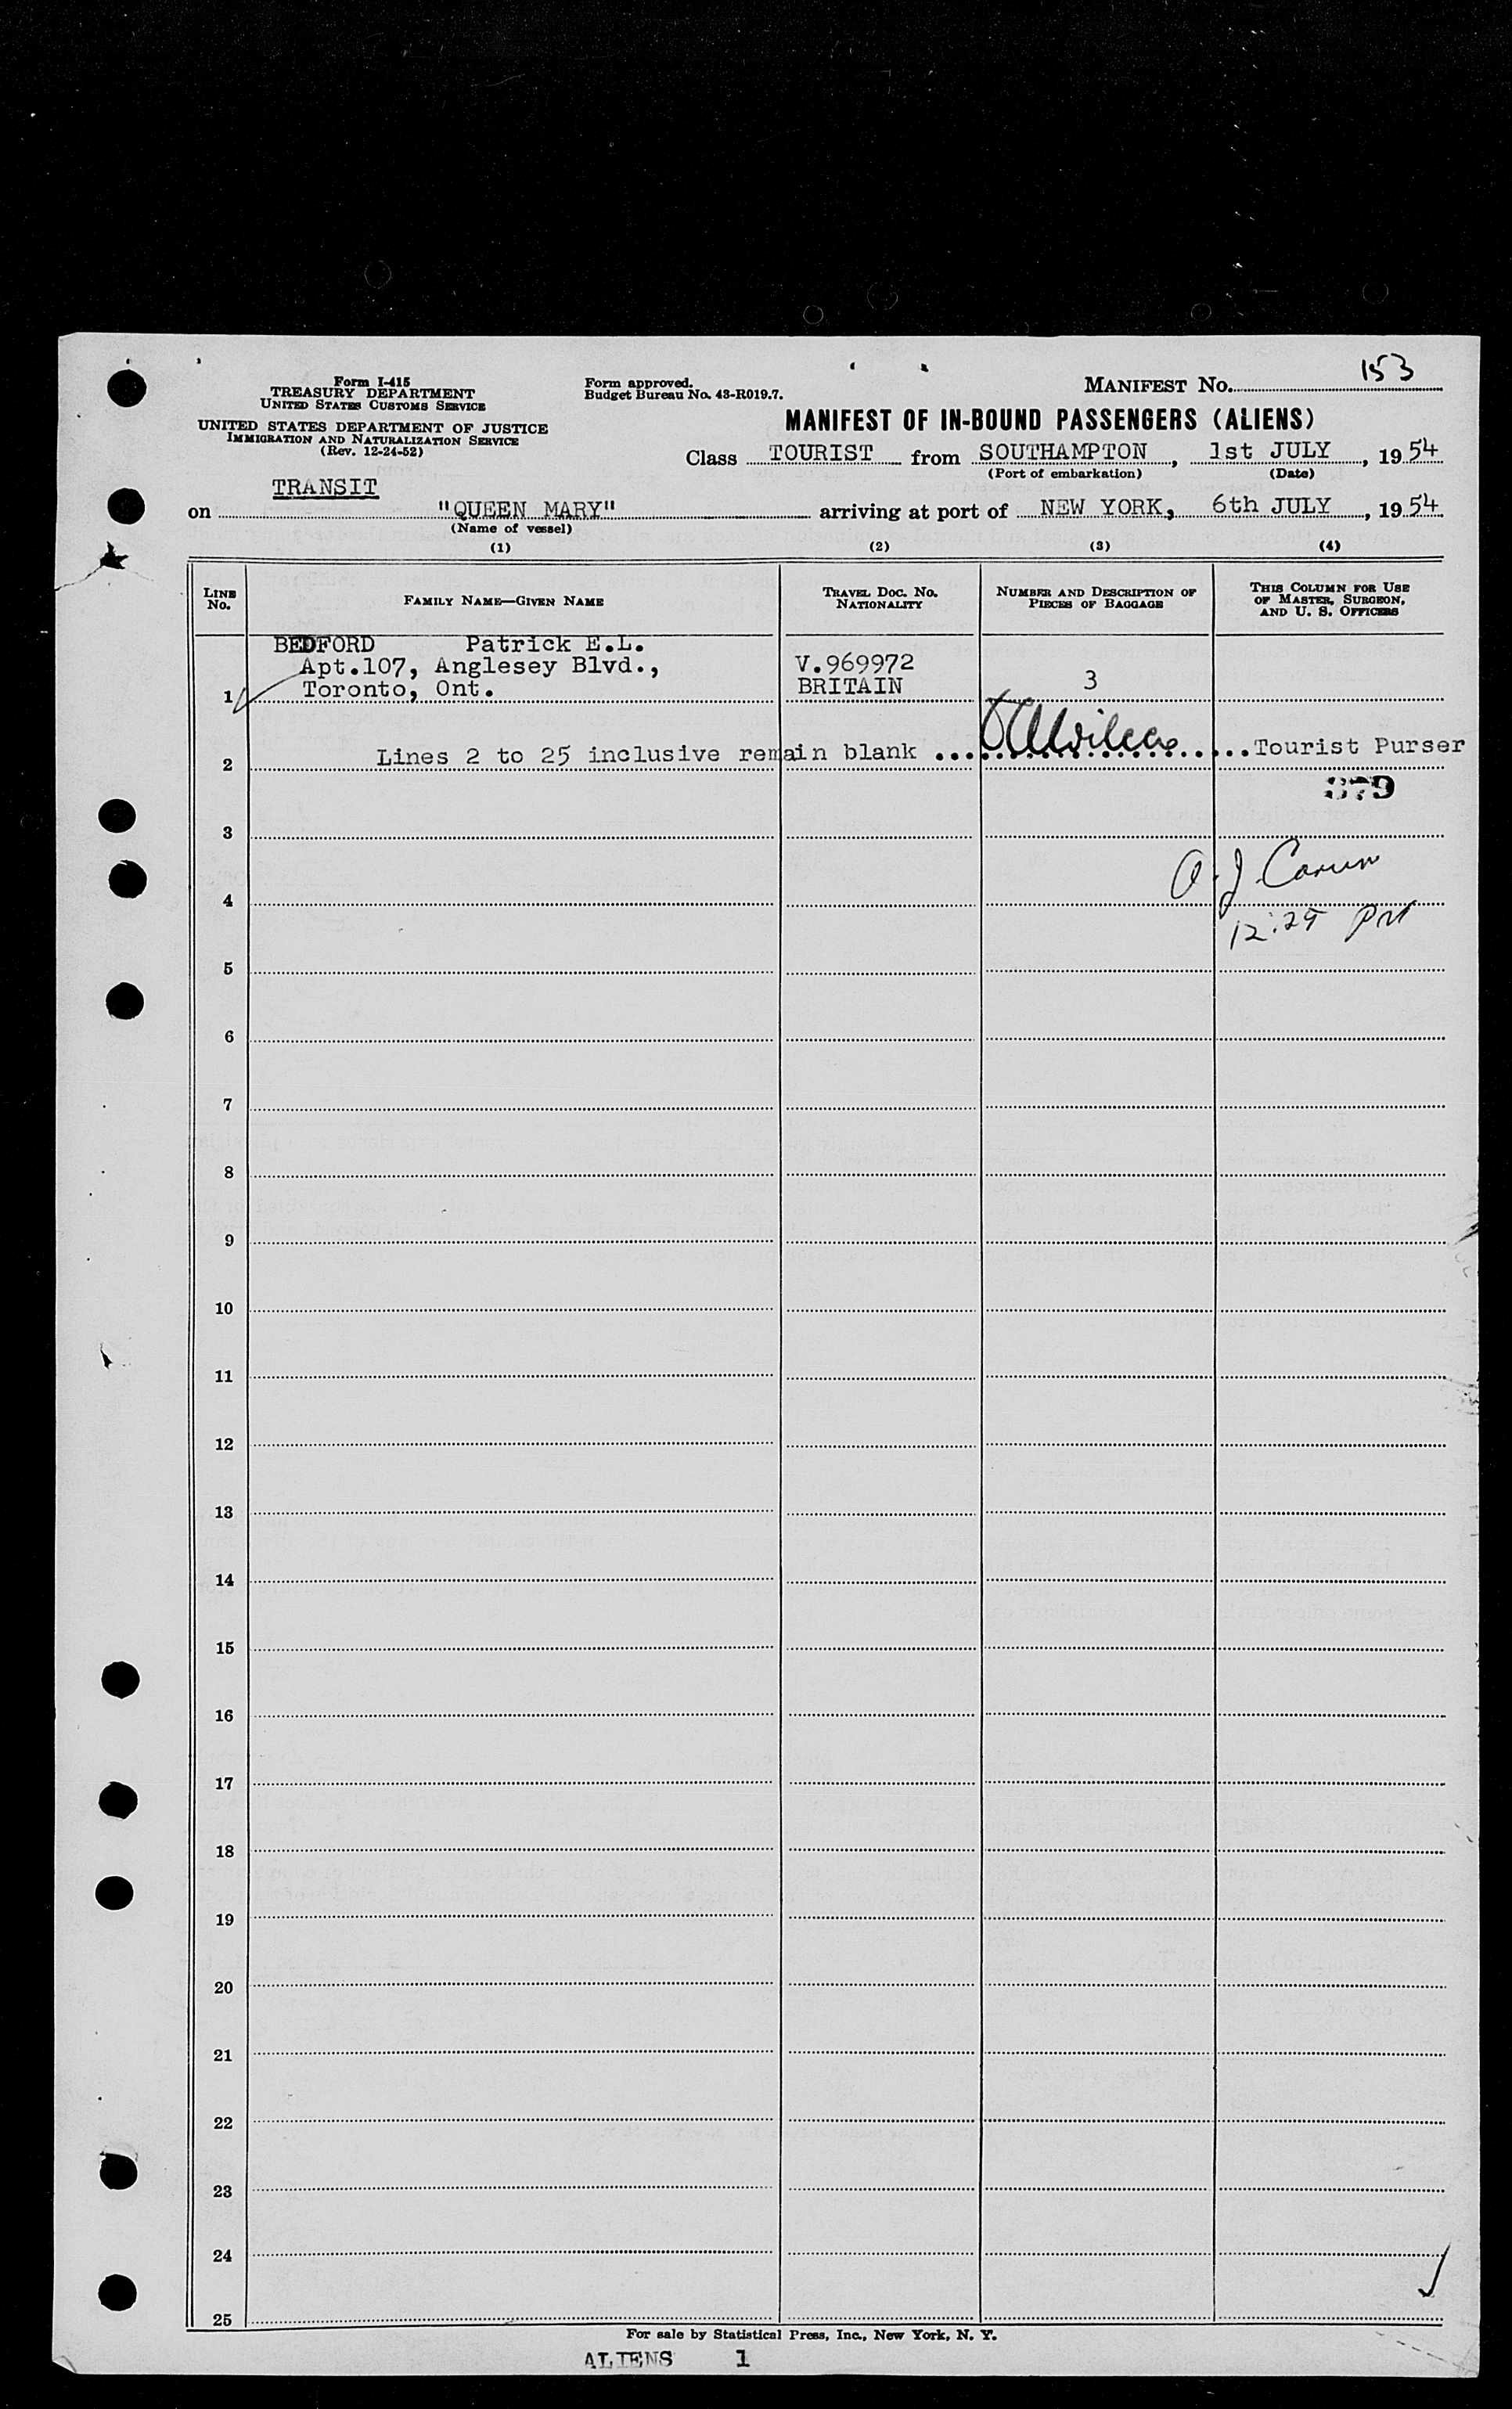 Form I-415
TREASURY DEPARTMENT
UNITED STATES CUSTOMS SERVICE
UNITED STATES DEPARTMENT OF JUSTICE
IMMIGRATION AND NATURALIZATION SERVICE
(Rev. 12-24-52)
Form approved.
Budget Bureau No. 43-R019.7.
MANIFEST No. 153
MANIFEST OF IN-BOUND PASSENGERS (ALIENS)
Class TOURIST from SOUTHAMPTON, 1st JULY, 1954
(Port of embarkation) (Date)
TRANSIT
on "QUEEN MARY" arriving at port of NEW YORK, 6th JULY, 1954
(Name of vessel)
(1) (2) (3) (4)
LINE No. FAMILY NAME—GIVEN NAME TRAVEL DOC. No. NATIONALITY NUMBER AND DESCRIPTION OF PIECES OF BAGGAGE THIS COLUMN FOR USE OF MASTER, SURGEON, AND U. S. OFFICERS
BEDFORD Patrick E.L.
Apt.107, Anglesey Blvd., V.969972
1 Toronto, Ont. BRITAIN 3
2 Lines 2 to 25 inclusive remain blank ... ...Tourist Purser
879
3
4 12:25 PM
5
6
7
8
9
10
11
12
13
14
15
16
17
18
19
20
21
22
23
24
25
For sale by Statistical Press, Inc., New York, N. Y.
ALIENS 1